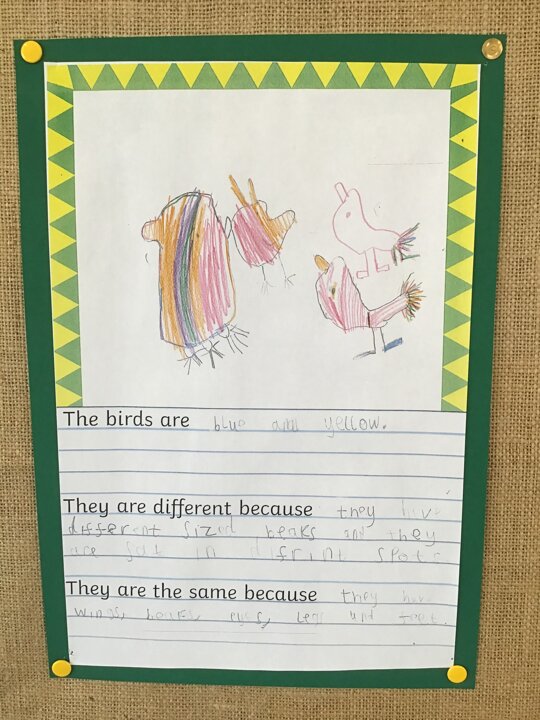 The birds are blue and yellow.
They are different because they have
different sized beaks and they
are fat in difrint spots
They are the same because they have
wings, beaks, eyes, legs and feet.